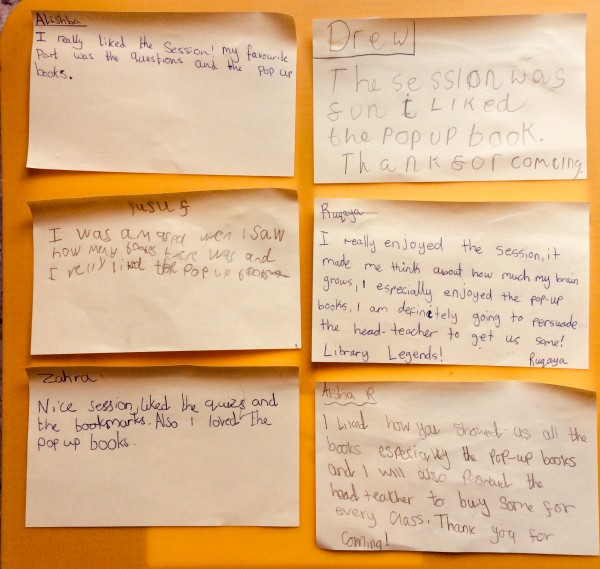 Alishba
I really liked the session! my favourite
Part was the questions and the pop up
books.
Drew
The session was
fun i liked
the pop up book.
Thank for coming.
Yusuf
I was amased wen I saw
how meny bookes there was and
I relly liked the pop up bookes
Ruqaya
I really enjoyed the session, it
made me think about how much my brain
grows, I especially enjoyed the pop-up
books, I am definitely going to persuade
the head-teacher to get us some!
Library Legends! Ruqaya
Zahra
Nice session, liked the quizs and
the bookmarks. Also I loved the
pop up books.
Aisha R
I liked how you showed us all the
books especially the pop-up books
and I will also the
head teacher to buy some for
every class. Thank you for
coming!